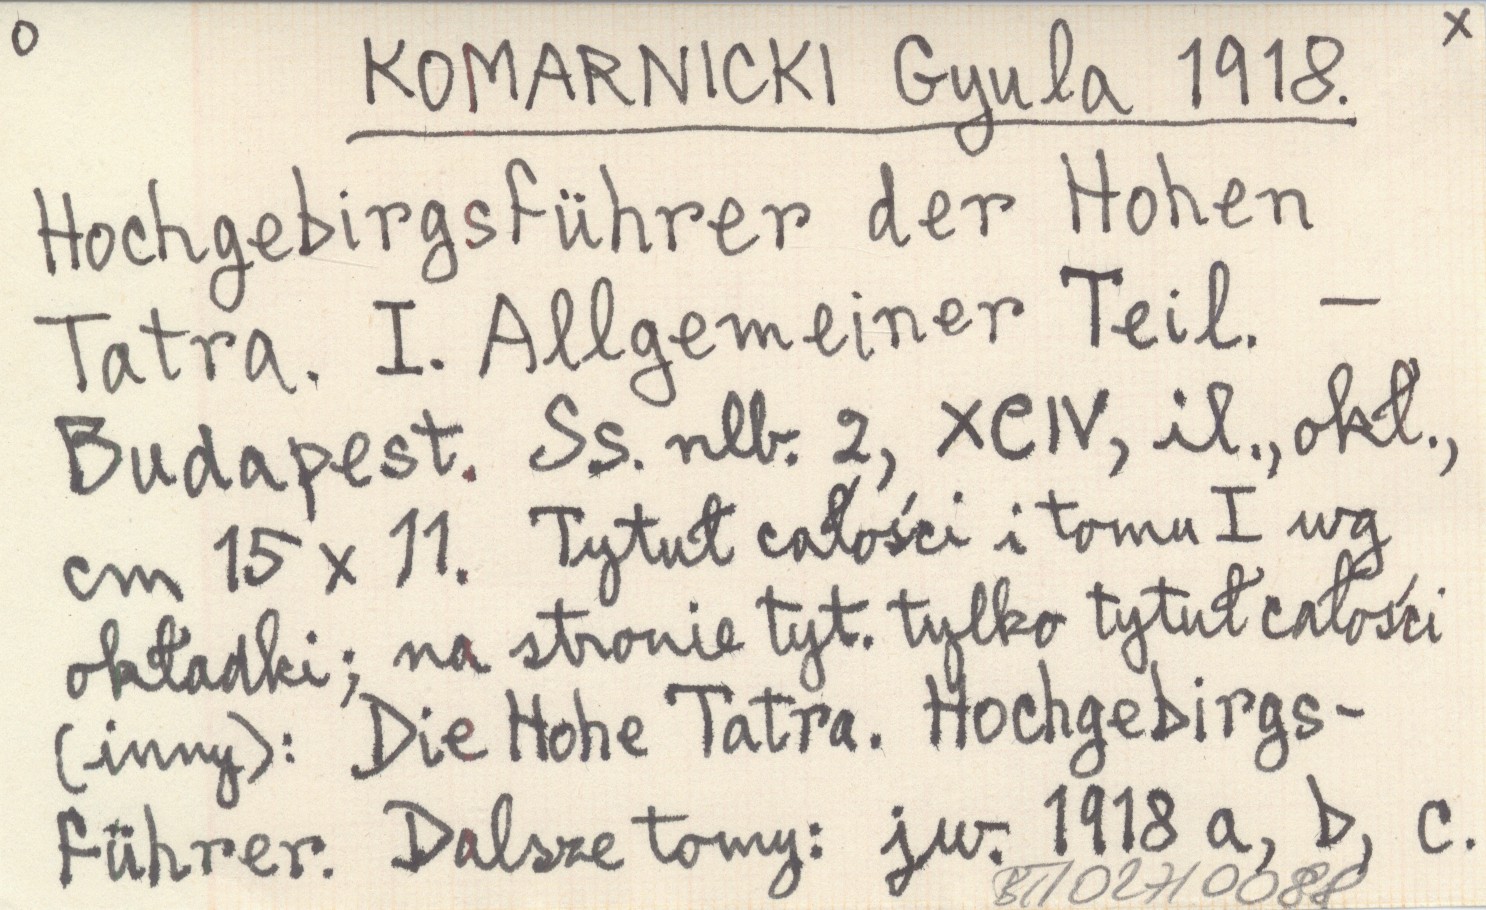 O KOMARNICKI Gyula 1918. X
Hochgebirgsführer der Hohen
Tatra. I. Allgemeiner Teil. –
Budapest. Ss. nlb. 2, XCIV, il., okł.,
cm 15 x 11. Tytuł całości i tomu I wg
okładki; na stronie tyt. tylko tytuł całości
(inny): Die Hohe Tatra. Hochgebirgs-
führer. Dalsze tomy: jw. 1918 a, b, c.
BT/027/0088